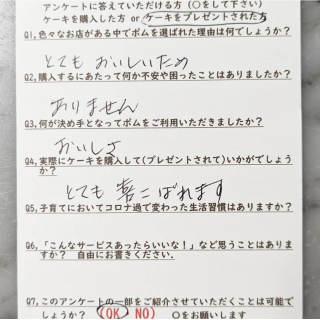 アンケートに答えていただける方(○をして下さい)
ケーキを購入した方 or ケーキをプレゼントされた方
Q1,色々なお店がある中でボムを選ばれた理由は何でしょうか?
とても おいしいため
Q2,購入するにあたって何か不安や困ったことはありましたか?
ありません
Q3,何が決め手となってボムをご利用いただきましたか?
おいしさ
Q4,実際にケーキを購入して(プレゼントされて)いかがでしょう
か?
とても 喜こばれます
Q5,子育てにおいてコロナ過で変わった生活習慣はありますか?
Q6,「こんなサービスあったらいいな!」など思うことはありま
すか? 自由にお書きください.
Q7,このアンケートの一部をご紹介させていただくことは可能で
しょうか? (OK NO) ○をお願いします